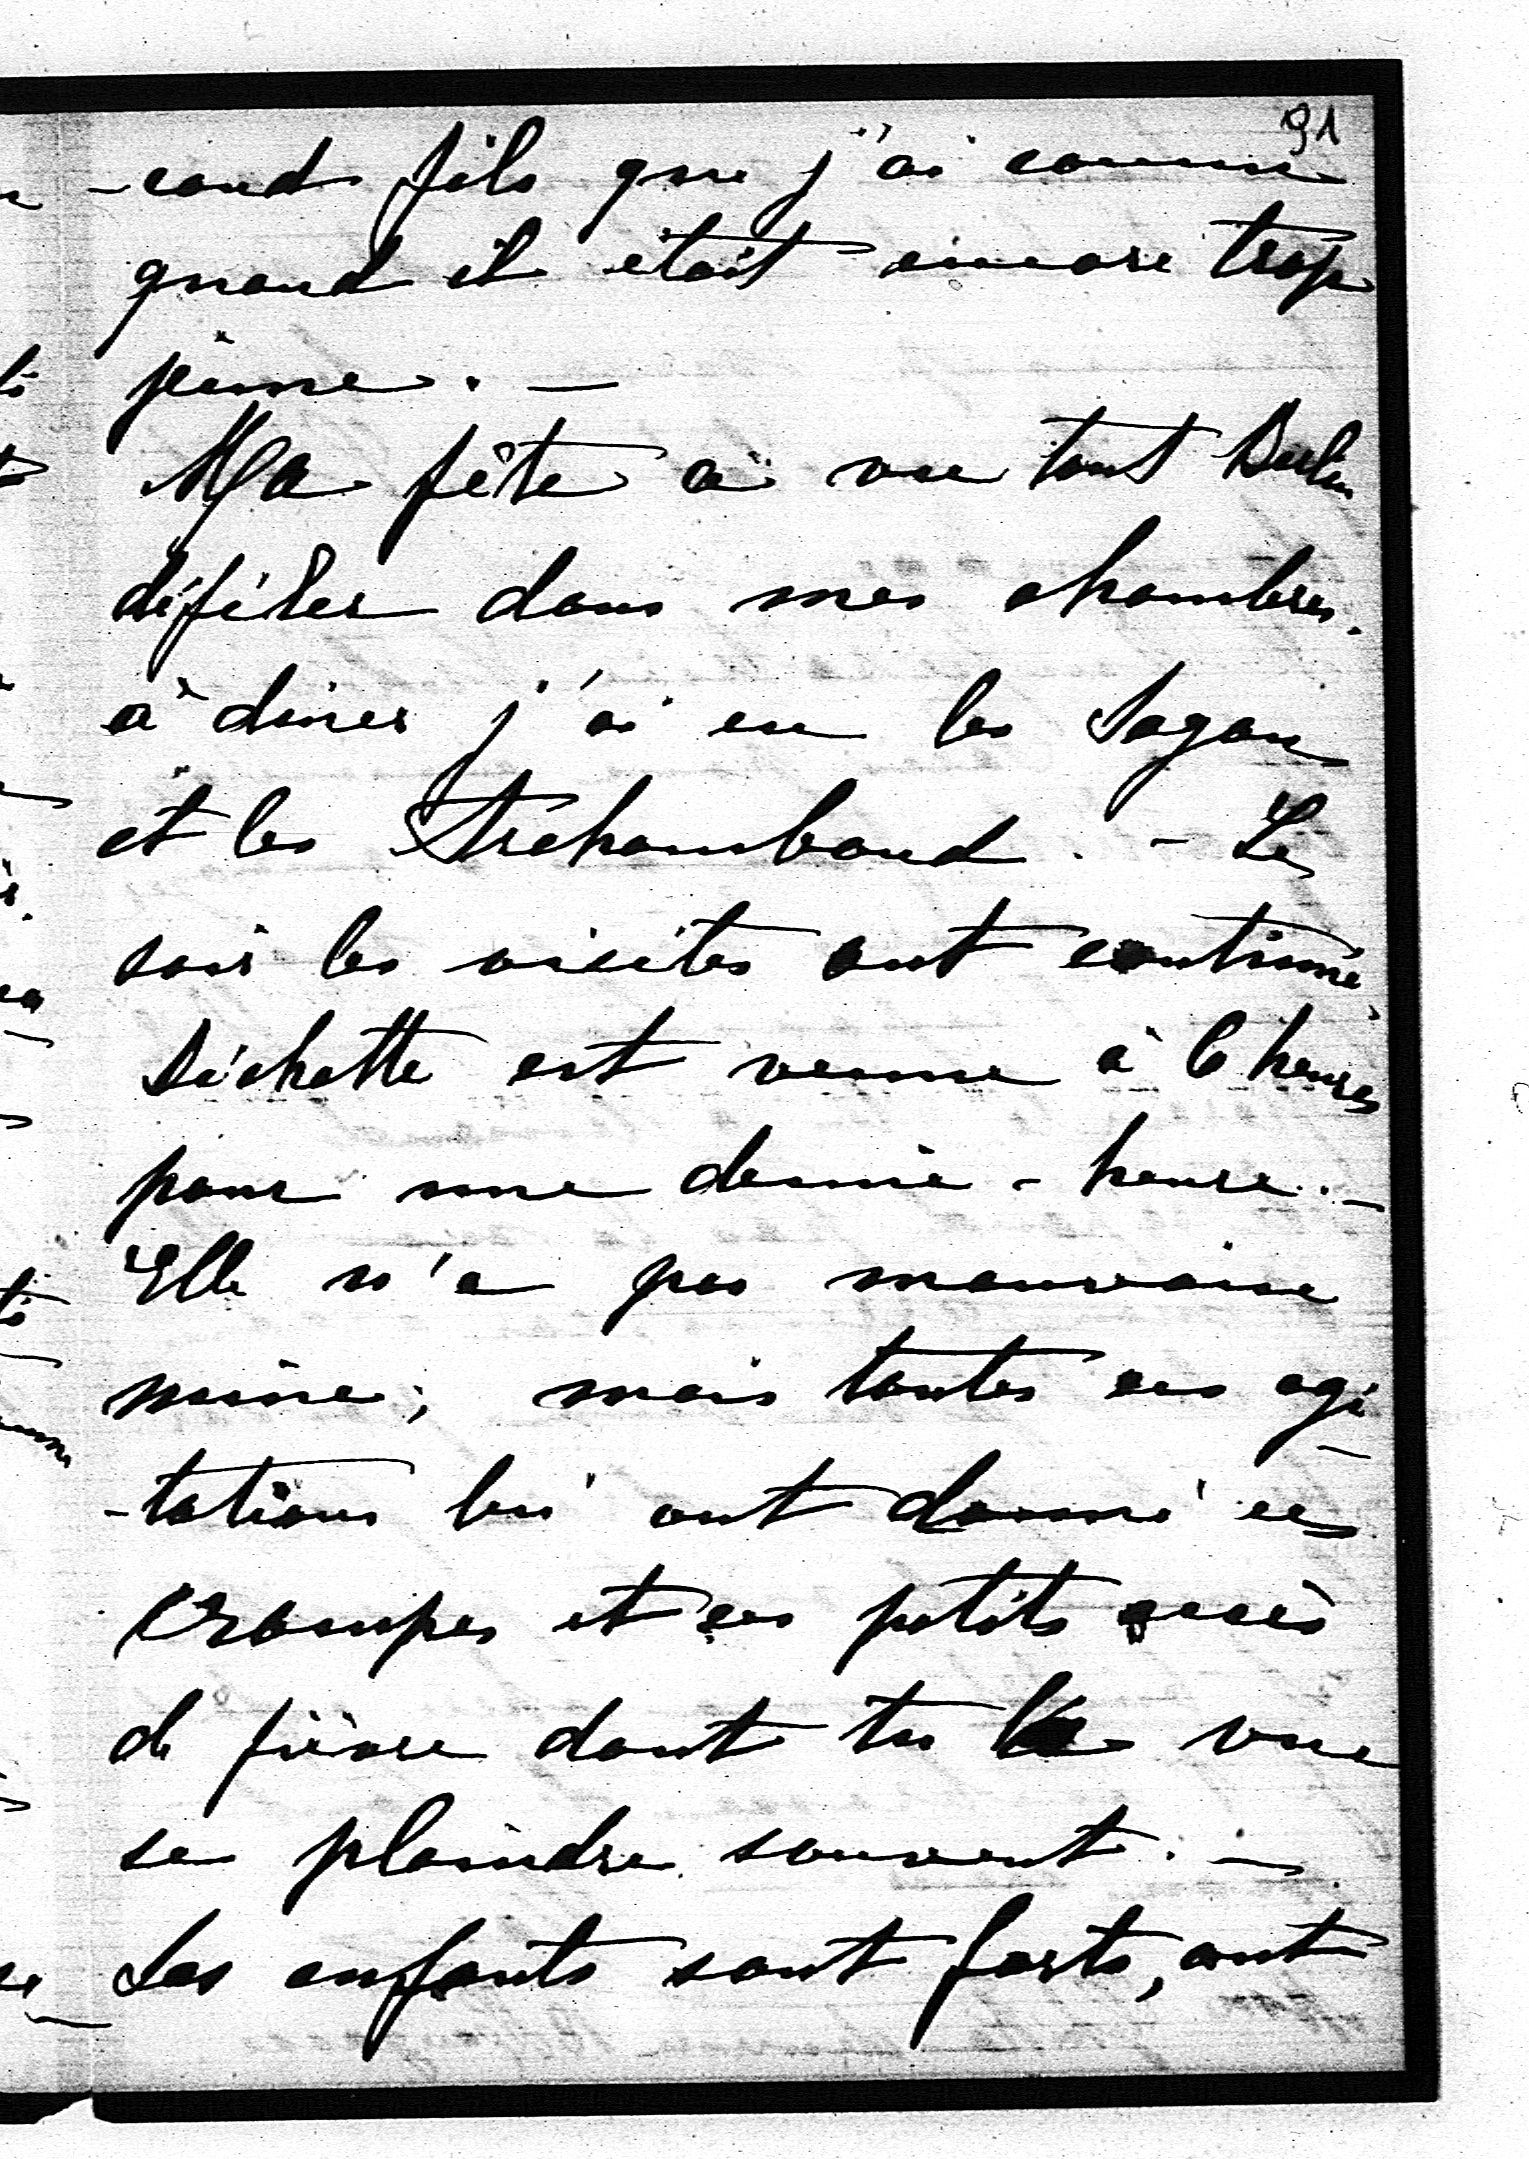 91
-cond fils que j'ai connu
quand il était encore trop
jeune. —
Ma fête a vu tout Berlin
défiler dans mes chambres.
à diner j'ai eu les Sagan
et les Archambaud. - Le
soir les visites ont continué
Bichette est venue à 6 heures
pour une demie - heure. —
Elle n'a pas mauvaise
mine; mais toutes ces agi
-tations lui ont donné ces
crampes et ces petits accès
de fièvre dont tu l'a vue
se plaindre souvent. —
Les enfants sont forts, ont